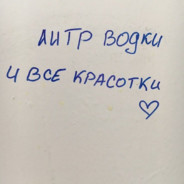 ЛИТР ВОДКИ
И ВСЕ КРАСОТКИ